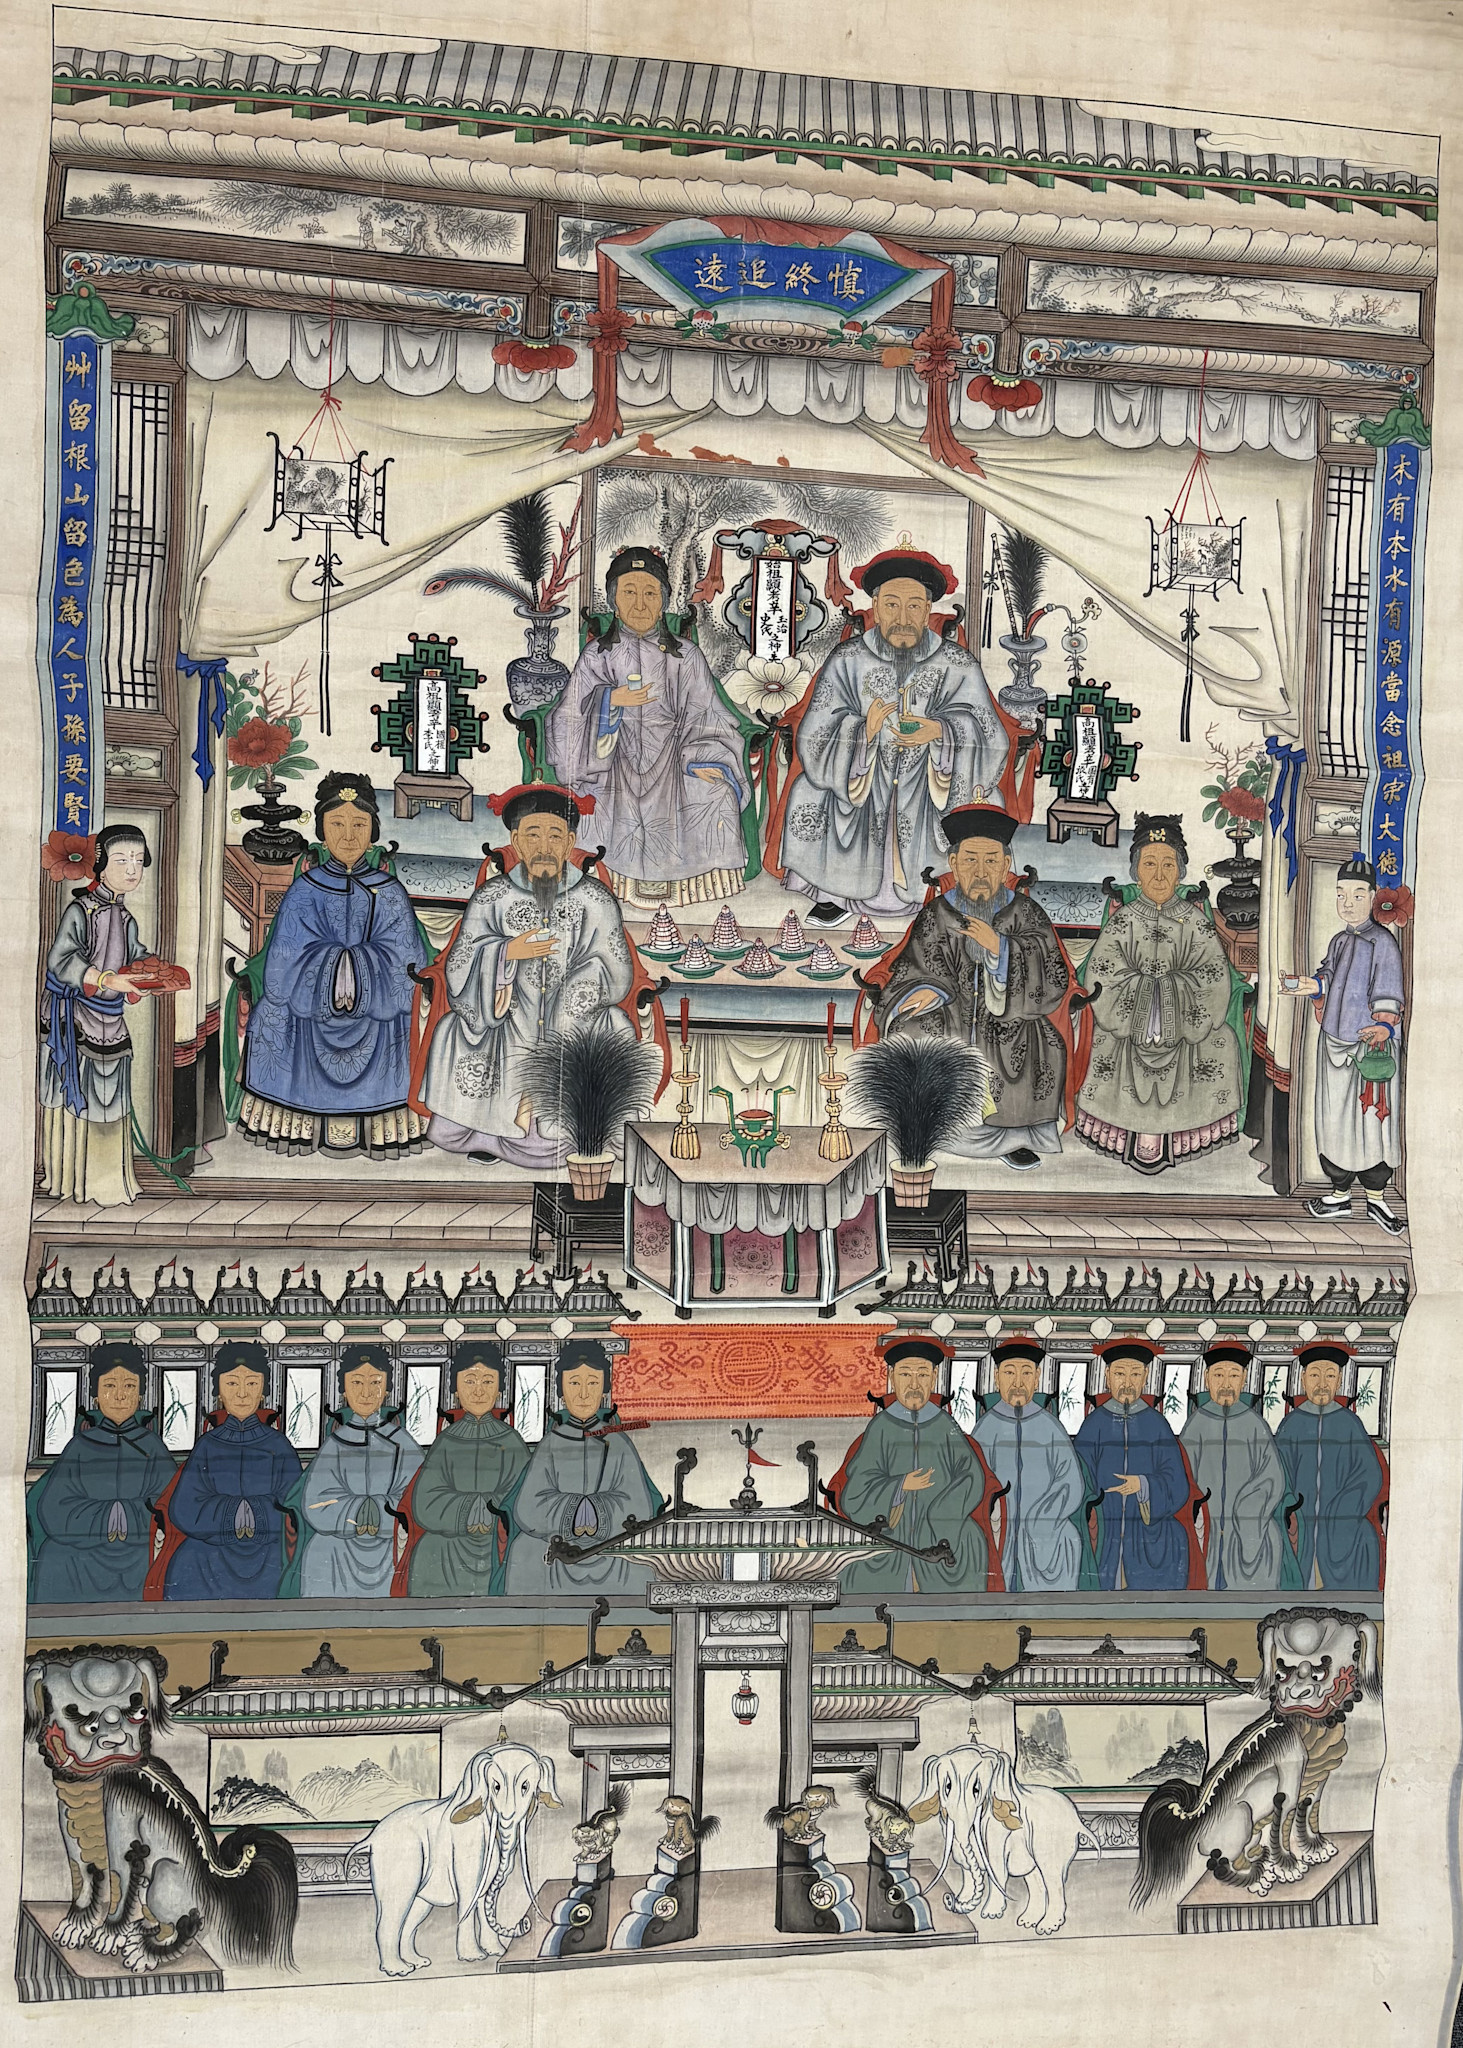 慎終追遠
木有本水有源當念祖宗大德
艸留根山留色為人子孫要賢
始祖顯考辛玉治
史氏
之神主
高祖顯考辛
高祖顯考辛國
李氏
之神主